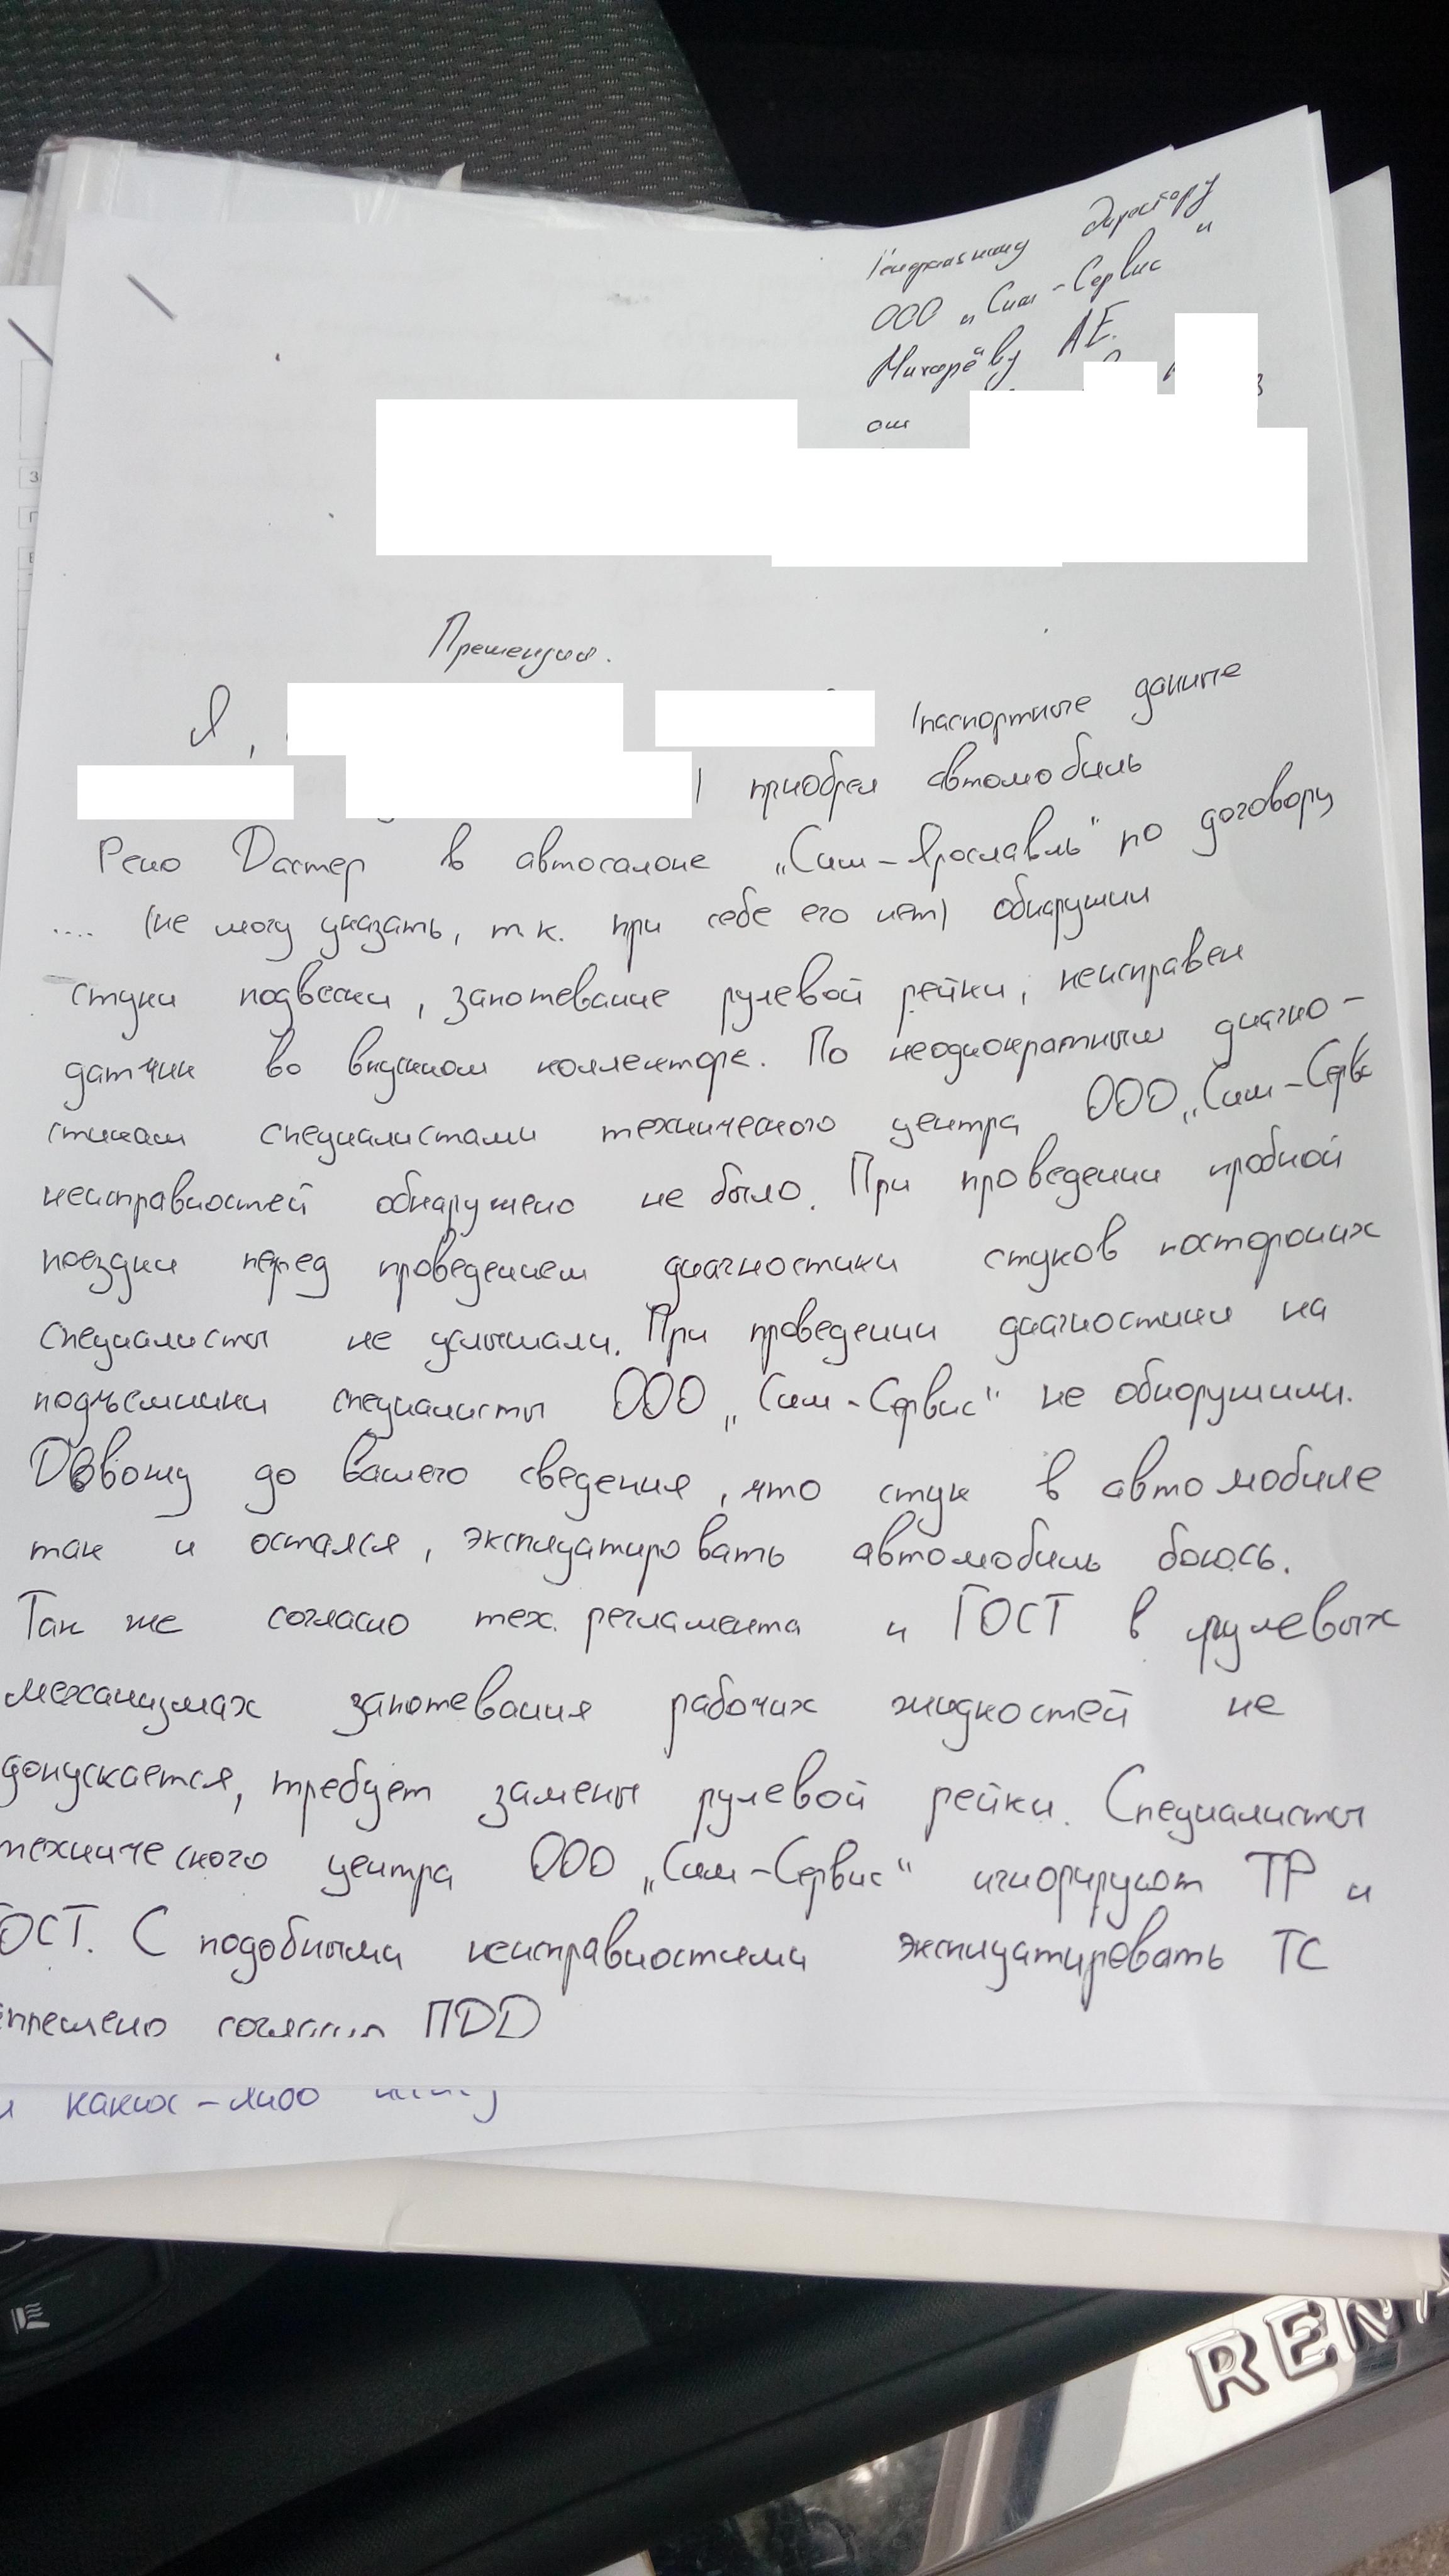 Генеральному директору
ООО „Сим-Сервис"
А.Е.
от
Претензия.
Я, (паспортные данные
) приобрел автомобиль
Рено Дастер в автосалоне „Сим-Ярославль" по договору
.... (не могу указать, т к. при себе его нет) обнаружил
стуки подвески, запотевание рулевой рейки, неисправен
датчик во впускном коллекторе. По неоднократным диагно-
стикам специалистами технического центра ООО „Сим-Сервис
неисправностей обнаружено не было. При проведении пробной
поездки перед проведением диагностики стуков постороних
специалисты не услышали. При проведении диагностики на
подъемники специалисты ООО „Сим-Сервис" не обнорушили.
Довожу до вашего сведения, что стук в автомобиле
так и остался, эксплуатировать автомобиль боюсь.
Так же согласно тех. регламента и ГОСТ в рулевых
механизмах запотевания рабочих жидкостей не
допускается, требует замены рулевой рейки. Специалисты
технического центра ООО „Сим-Сервис" игнорируют ТР и
ГОСТ. С подобными неисправностями эксплуатировать ТС
апрещено согласно ПДД
и каких-либо
RENA